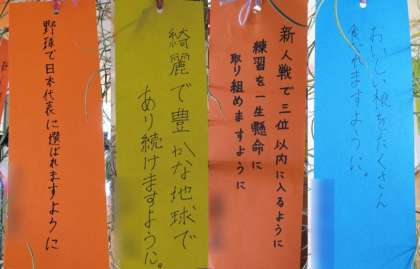 野球で日本代表に選ばれますように
綺麗で豊かな地球で
あり続けますように。
新人戦で三位以内に入るように
練習を一生懸命に
取り組めますように
おいしい桃をたくさん
食れますように。